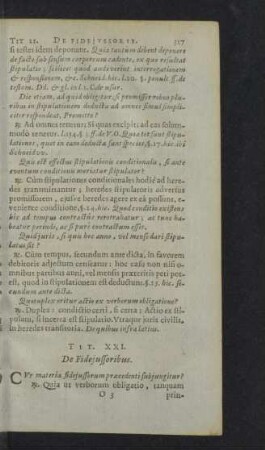 TIT. 21. DE FIDEJUSSORIB. 317
si testes idem deponant. Quia tantum debent deponere
de facto sub sensum corporeum cadente, ex quo resultat
stipulatio; scilicet quod audiverint interrogationem
& responsionem, &c. Schneid. hic. l. 20. §. penult. ff. de
testam. Dd. & gl. in l. 1. C. de usur.
Dic etiam, ad quid obligetur, si promissor rebus pluri-
bus in stipulationem deductis ad omnes simul simplici-
ter respondeat, Promitto?
℞. Ad omnes tenetur: si quas excipit, ad eas solum-
modo tenetur.
Quis est effectus stipulationis conditionalis, si ante
eventum conditionis moriatur stipulator?
℞. Cum stipulationes conditionales hodie ad hære-
des transmittantur; heredes stipulatoris adversus
promissorem, ejusve heredes agere ex eâ possunt, e-
veniente conditione. §. 24. hic. Quod conditio existens
hic ad tempus contractus retrotrahatur, ac tunc ha-
beatur perinde, ac si purè contractum esset.
Quid juris, si quis hoc anno, vel mense dari stipu-
latus sit?
℞. Cum tempus, secundum ante dicta, in favorem
debitoris adjectum censeatur: hoc casu non nisi o-
mnibus partibus anni, vel mensis præteritis peti pot-
est, quod in stipulationem est deductum. §. 25. hic. se-
cundum ante dicta.
Quotuplex oritur actio ex verborum obligatione?
℞. Duplex: condictio certi, si certa: Actio ex sti-
pulatu, si incerta est stipulatio. Utraque juris civilis,
in heredes transitoria. De quibus infra latius.
TIT. XXI.
De Fidejussoribus.
CUr materia fidejussorum præcedenti subjungitur?
℞. Quia ut verborum obligatio, tanquam
O 3 prin-